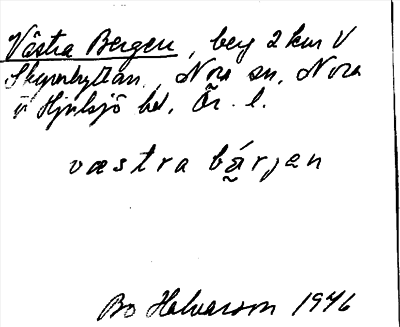 Västra Bergen, berg 2 km V
Skymhyttan, Nora sn, Nora
o Hjulsjö hd, Ör. l.
västra bä́rjen
Bo Halvarson 1946